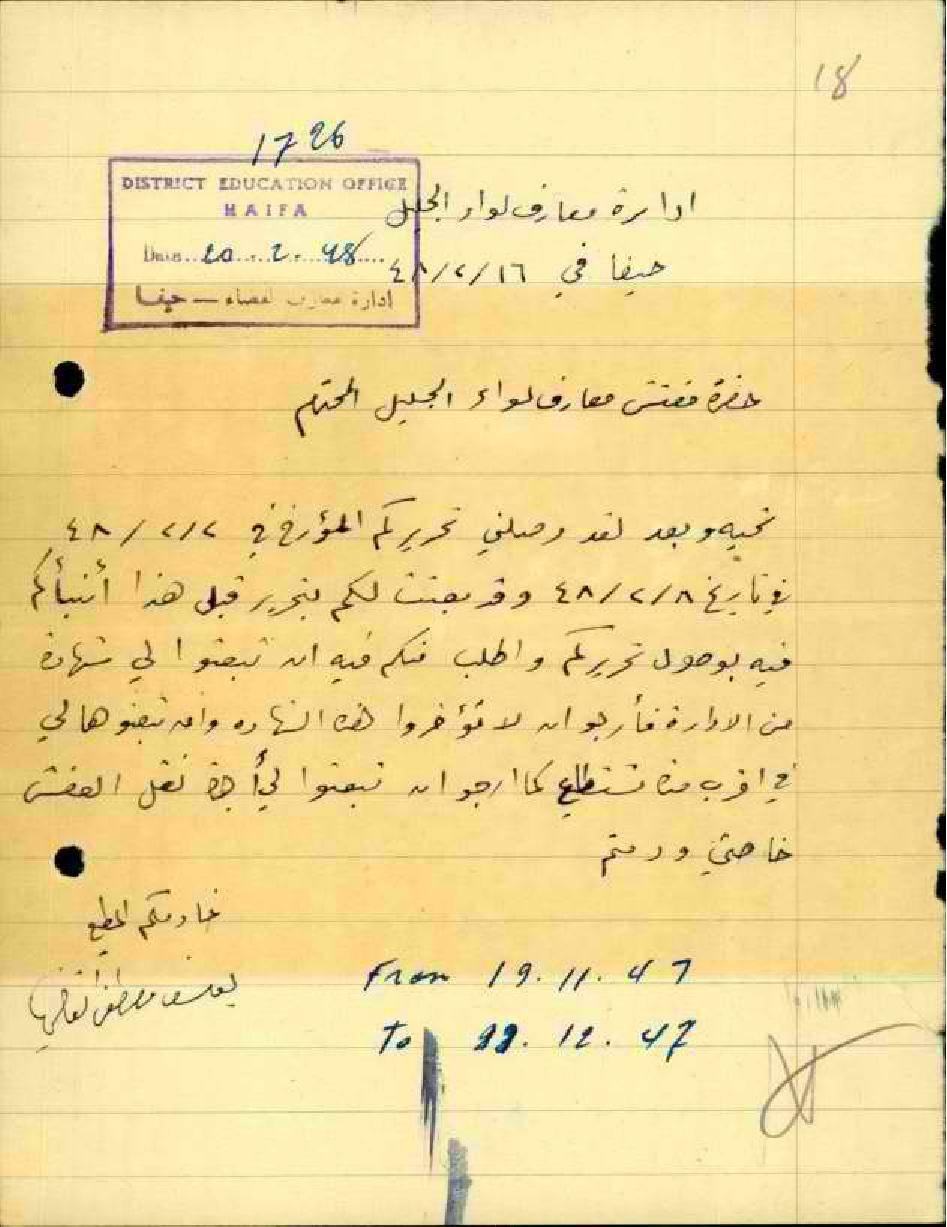 18
1726
DISTRICT EDUCATION OFFICE
HAIFA
Date 20.2.48
ادارة معارف لقضاء — حيفا
ادارة معارف لواء الجليل
حيفا في ٤٨/٢/١٦
حضرة مفتش معارف لواء الجليل المحترم
تحيه وبعد لقد وصلني تحريركم المؤرخ في ٤٨/٢/٢
في تاريخ ٤٨/٢/٨ وقد بعثت لكم بتحرير قبل هذا أنبأكم
فيه بوصول تحريركم واطلب منكم فيه ان تبعثوا لي شهادة
من الادارة فأرجو ان لا تؤخروا هذه الشهاده وان تبعثوها لي
في اقرب تستطاع كما ارجو ان تبعثوا لي أجرة نقل العفش
خاصتي ودمتم
خادمكم المطيع
مصطفى
From 19.11.47
To 22.12.47